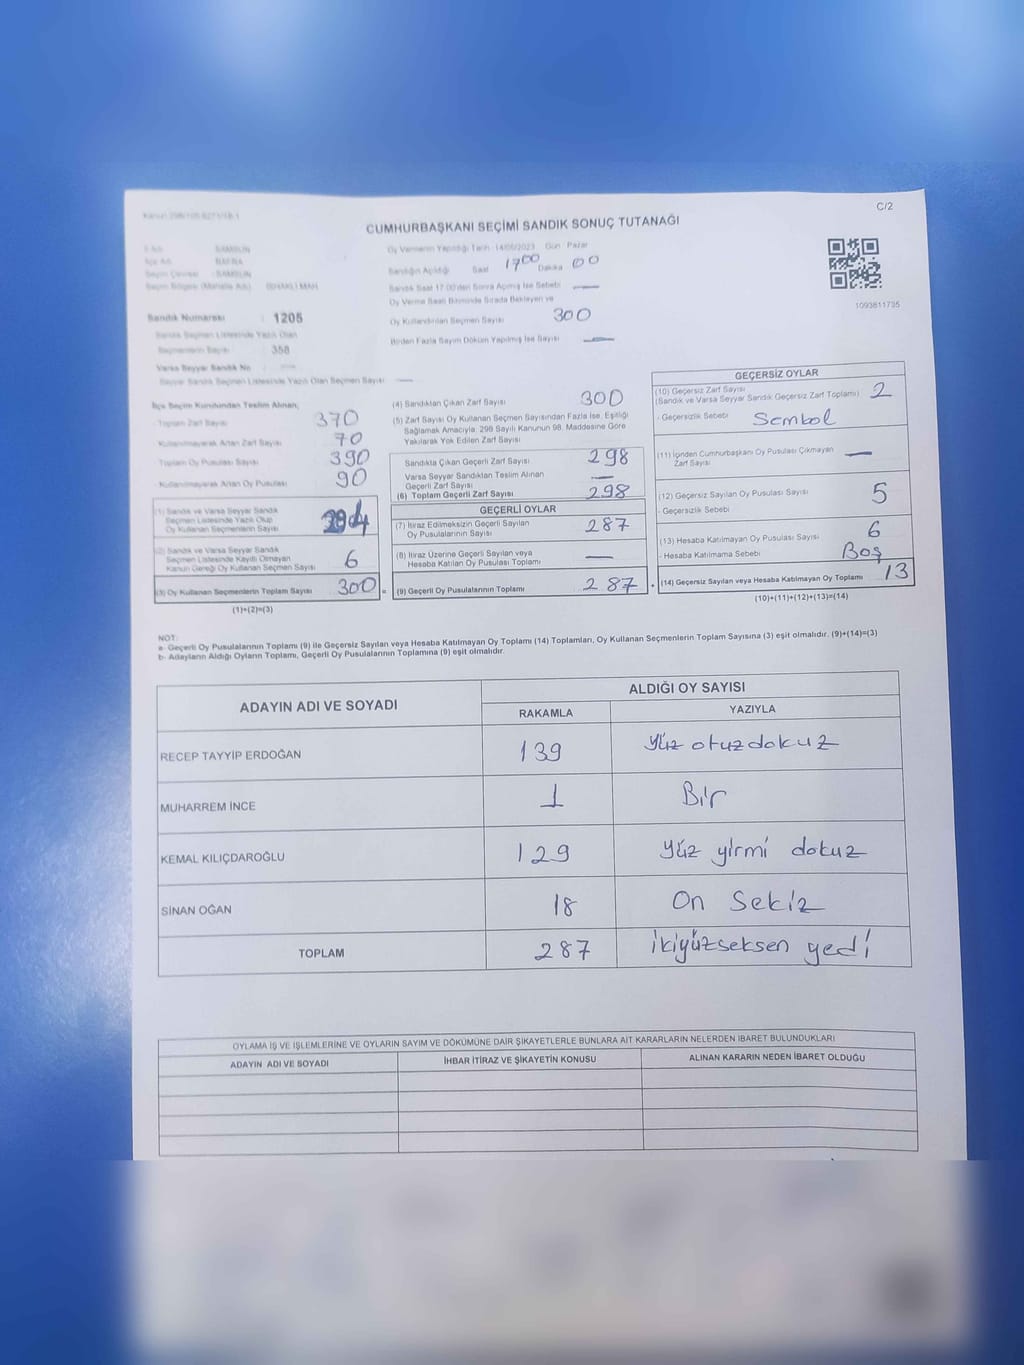 C/2
CUMHURBAŞKANI SEÇİMİ SANDIK SONUÇ TUTANAĞI
SAMSUN
Oy Vermenin Yapıldığı Tarih :14/05/2023 Gün Pazar
İlçe Adı BAFRA
Sandığın Açıldığı Saat 1700 Dakika 00
Seçim Çevresi :SAMSUN
Sandık Saat 17.00'den Sonra Açılmış İse Sebebi —
Seçim Bölgesi (Mahalle Adı)
Oy Verme Saati Bitiminde Sırada Bekleyen ve
Oy Kullandırılan Seçmen Sayısı 300
1093811735
Sandık Numarası : 1205
Birden Fazla Sayım Döküm Yapılmış İse Sayısı —
Sandık Seçmen Listesinde Yazılı Olan
Seçmenlerin Sayısı 358
Varsa Seyyar Sandık No
Seyyar Sandık Seçmen Listesinde Yazılı Olan Seçmen Sayısı —
İlçe Seçim Kurulundan Teslim Alınan;
Toplam Zarf Sayısı 370
Kullanılmayarak Artan Zarf Sayısı 70
Toplam Oy Pusulası Sayısı 390
Kullanılmayarak Artan Oy Pusulası 90
(1) Sandık ve Varsa Seyyar Sandık
Seçmen Listesinde Yazılı Olup
Oy Kullanan Seçmenlerin Sayısı
(2) Sandık ve Varsa Seyyar Sandık
Seçmen Listesinde Kayıtlı Olmayan
Kanun Gereği Oy Kullanan Seçmen Sayısı 6
(3) Oy Kullanan Seçmenlerin Toplam Sayısı 300 =
(1)+(2)=(3)
(4) Sandıktan Çıkan Zarf Sayısı 300
(5) Zarf Sayısı Oy Kullanan Seçmen Sayısından Fazla İse, Eşitliği
Sağlamak Amacıyla, 298 Sayılı Kanunun 98. Maddesine Göre
Yakılarak Yok Edilen Zarf Sayısı
Sandıkta Çıkan Geçerli Zarf Sayısı 298
Varsa Seyyar Sandıktan Teslim Alınan
Geçerli Zarf Sayısı —
(6) Toplam Geçerli Zarf Sayısı 298
GEÇERLİ OYLAR
(7) İtiraz Edilmeksizin Geçerli Sayılan
Oy Pusulalarının Sayısı 287
(8) İtiraz Üzerine Geçerli Sayılan veya
Hesaba Katılan Oy Pusulası Toplamı —
(9) Geçerli Oy Pusulalarının Toplamı 287 +
GEÇERSİZ OYLAR
(10) Geçersiz Zarf Sayısı
(Sandık ve Varsa Seyyar Sandık Geçersiz Zarf Toplamı) 2
- Geçersizlik Sebebi Sembol
(11) İçinden Cumhurbaşkanı Oy Pusulası Çıkmayan
Zarf Sayısı —
(12) Geçersiz Sayılan Oy Pusulası Sayısı 5
- Geçersizlik Sebebi
(13) Hesaba Katılmayan Oy Pusulası Sayısı 6
- Hesaba Katılmama Sebebi Boş
(14) Geçersiz Sayılan veya Hesaba Katılmayan Oy Toplamı 13
(10)+(11)+(12)+(13)=(14)
NOT:
a- Geçerli Oy Pusulalarının Toplamı (9) ile Geçersiz Sayılan veya Hesaba Katılmayan Oy Toplamı (14) Toplamları, Oy Kullanan Seçmenlerin Toplam Sayısına (3) eşit olmalıdır. (9)+(14)=(3)
b- Adayların Aldığı Oyların Toplamı, Geçerli Oy Pusulalarının Toplamına (9) eşit olmalıdır.
ADAYIN ADI VE SOYADI
ALDIĞI OY SAYISI
RAKAMLA YAZIYLA
RECEP TAYYİP ERDOĞAN 139 Yüz otuzdokuz
MUHARREM İNCE 1 Bir
KEMAL KILIÇDAROĞLU 129 Yüz yirmi dokuz
SİNAN OĞAN 18 On Sekiz
TOPLAM 287 ikiyüzseksen yedi
OYLAMA İŞ VE İŞLEMLERİNE VE OYLARIN SAYIM VE DÖKÜMÜNE DAİR ŞİKAYETLERLE BUNLARA AİT KARARLARIN NELERDEN İBARET BULUNDUKLARI
ADAYIN ADI VE SOYADI İHBAR İTİRAZ VE ŞİKAYETİN KONUSU ALINAN KARARIN NEDEN İBARET OLDUĞU